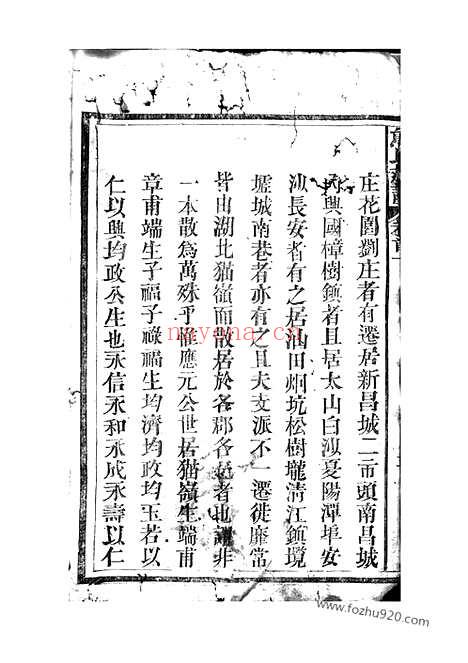 庄花園劉庄者有遷居新昌城二市頭南昌城
興國樟樹鎮者且居太山白沙夏陽潭埠安
汕長安者有之居油田炯坑松樹壠清江鎮境
墟城南巷者亦有之且夫支派不一遷徙靡常
皆由湖北猫嶺而散居於各郡各邑者也謂非
一本散為萬殊乎惟應元公世居猫嶺生端甫
章甫端生子福子祿福生均濟均政均玉若以
仁以興均政公生也永信永和永成永壽以仁
nayona.cn
www.fozhu920.com